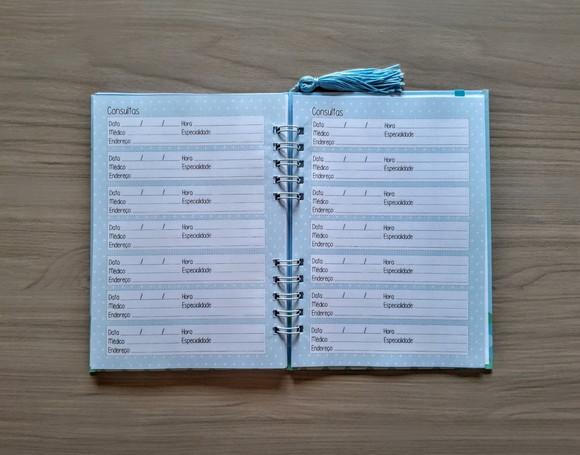 Consultas
Data / / Hora
Médico Especialidade
Endereço
Data / / Hora
Médico Especialidade
Endereço
Data / / Hora
Médico Especialidade
Endereço
Data / / Hora
Médico Especialidade
Endereço
Data / / Hora
Médico Especialidade
Endereço
Data / / Hora
Médico Especialidade
Endereço
Data / / Hora
Médico Especialidade
Endereço
Consultas
Data / / Hora
Médico Especialidade
Endereço
Data / / Hora
Médico Especialidade
Endereço
Data / / Hora
Médico Especialidade
Endereço
Data / / Hora
Médico Especialidade
Endereço
Data / / Hora
Médico Especialidade
Endereço
Data / / Hora
Médico Especialidade
Endereço
Data / / Hora
Médico Especialidade
Endereço